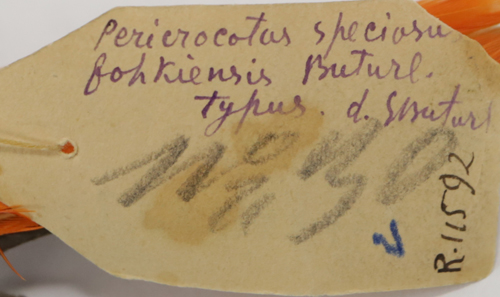 Pericrocotus speciosu
fohkiensis Buturl.
typus. d. SButurl
No
R.11592